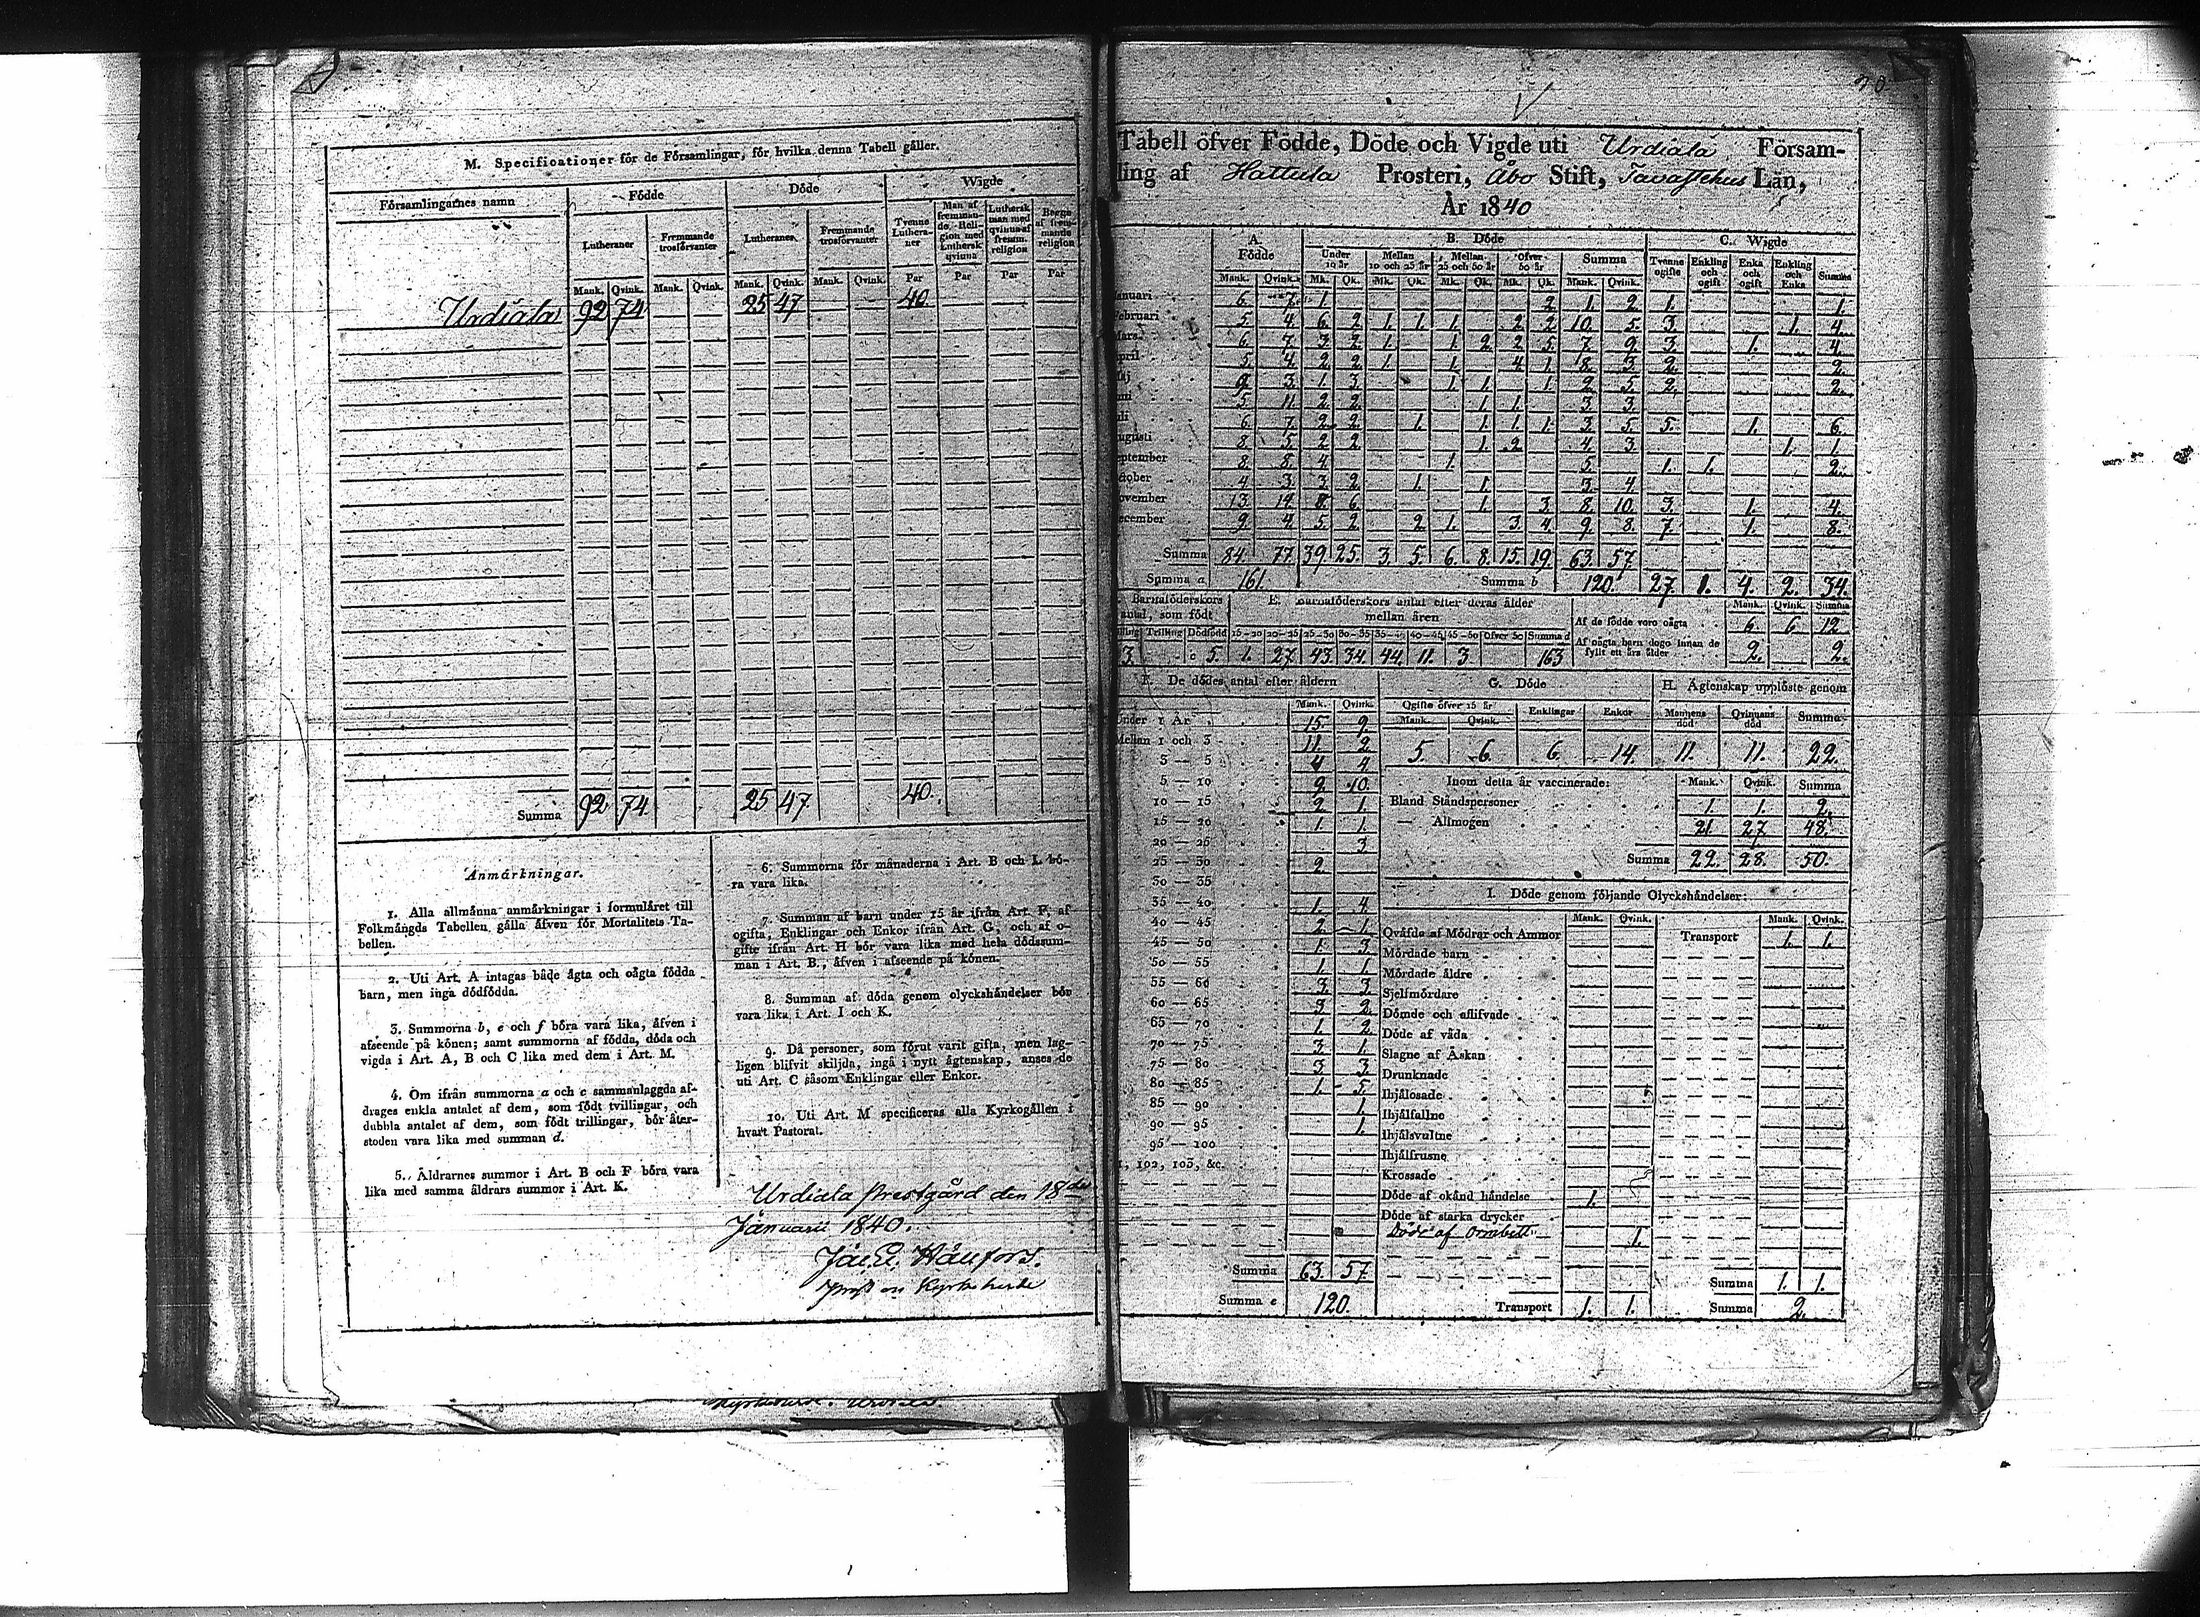 M. Specificationer för de Församlingar, för hvilka denna Tabell gäller.
Församlingarnes namn Födde Döde Wigde
Lutheraner Fremmande trosförvanter Lutheraner Fremmande trosförvanter Tvenne Lutheraner Man af fremmande Religion med Luthersk qvinna Luthersk man med qvinna af fremm. religion Begge af fremmande religion
Mank. Qvink. Mank. Qvink. Mank. Qvink. Mank. Qvink. Par Par Par Par
Urdiala 92 74 25 47 40.
Summa 92 74. 25 47. 40.
Anmärkningar.
1. Alla allmänna anmärkningar i formuläret till
Folkmängds Tabellen gälla äfven för Mortalitets Ta-
bellen.
2. Uti Art. A intagas både ägta och oägta födda
barn, men inga dödfödda.
3. Summorna b, e och f böra vara lika, äfven i
afseende på könen; samt summorna af födda, döda och
vigda i Art. A, B och C lika med dem i Art. M.
4. Om ifrån summorna a och c sammanlaggda af-
drages enkla antalet af dem, som födt tvillingar, och
dubbla antalet af dem, som födt trillingar, bör åter-
stoden vara lika med summan d.
5. Åldrarnes summor i Art. B och F böra vara
lika med samma åldrars summor i Art. K.
6. Summorna för månaderna i Art. B och L bö-
ra vara lika.
7. Summan af barn under 15 år ifrån Art. F, af
ogifta, Enklingar och Enkor ifrån Art. G, och af o-
gifte ifrån Art. H bör vara lika med hela dödssum-
man i Art. B, äfven i afseende på könen.
8. Summan af döda genom olyckshändelser bör
vara lika i Art. I och K.
9. Då personer, som förut varit gifta, men lag-
ligen blifvit skiljda, ingå i nytt ägtenskap, anses de
uti Art. C såsom Enklingar eller Enkor.
10. Uti Art. M specificeras alla Kyrkogällen i
hvart Pastorat.
Urdiala Prestgård den 18de
Januarii 1840.
Tabell öfver Födde, Döde och Vigde uti Urdiala Försam-
ling af Hattula Prosteri, Åbo Stift, Tavastehus Län,
År 1840
A. Födde B. Döde C. Wigde
Under 10 år Mellan 10 och 25 år Mellan 25 och 50 år Öfver 50 år Summa Tvenne ogifte Enkling och ogift Enka och ogift Enkling och Enka Summa
Mank. Qvink. Mk. Qk. Mk. Qk. Mk. Qk. Mk. Qk. Mank. Qvink.
anuari 6 7. 1. 2 1. 2. 1. 1.
ebruari 5 4. 6 2 1. 1. 1. 2 2 10. 5. 3. 1. 4.
ars 6 7. 3 2 1. 1. 2. 2 5. 7 9. 3. 1. 4.
pril 5 4. 2 2 1. 1. 4 1. 8. 3. 2. 2.
aj 9 3. 1. 3. 1. 1. 1. 2 5. 2. 2.
uni 5 11. 2 2. 1. 1. 3. 3.
uli 6 7. 2 2. 1. 1. 1. 1. 3 5. 5. 1. 6.
ugusti 8 5. 2 2 1. 2. 4 3. 1. 1.
eptember 8. 8. 4. 1. 5. 1. 1. 2.
ctober 4 3 3. 2. 1. 1. 3 4.
ovember 13. 14. 8. 6. 1. 3. 8. 10. 3. 1. 4.
ecember 9. 4. 5. 2. 2. 1. 3. 4. 9. 8. 7. 1. 8.
Summa 84. 77. 39 25. 3. 5. 6. 8. 15. 19. 63. 57.
Summa a 161. Summa b 120. 27. 1. 4. 2. 34.
Barnaföderskors antal, som födt
Trilling Dödfödd
3. c 5.
E. Barnaföderskors antal efter deras ålder mellan åren
15-20 20-25 25-30 30-35 35-40 40-45 45-50 öfver 50 Summa d
1. 27. 43. 34. 44. 11. 3 163
Mank. Qvink. Summa
Af de födde voro oägta 6 6 12
Af oägta barn dogo innan de fyllt ett års ålder 2. 2.
F. De dödes antal efter åldern
Mank. Qvink.
Under 1 År 15. 9.
Mellan 1 och 3 11. 2
3 — 5 4 4
5 — 10 9. 10.
10 — 15 2 1.
15 — 20 1. 1.
20 — 25 3
25 — 30 2.
30 — 35
35 — 40 1. 4
40 — 45 2 1.
45 — 50 1. 3
50 — 55 1. 1
55 — 60 3. 3.
60 — 65 3 2.
65 — 70 1. 2
70 — 75 3. 1.
75 — 80 3 3
80 — 85 1. 5.
85 — 90 1.
90 — 95 1.
95 — 100
102, 103, &c.
Summa 63. 57.
Summa e 120.
G. Döde
Ogifte öfver 15 år Enklingar Enkor
Mank. Qvink.
5 6. 6. 14.
H. Ägtenskap upplöste genom
Mannens död Qvinnans död Summa
11. 11. 22.
Inom detta år vaccinerade: Mank. Qvink. Summa
Bland Ståndspersoner 1. 1. 2.
— Allmogen 21. 27 48.
Summa 22. 28. 50.
I. Döde genom följande Olyckshändelser:
Mank. Qvink. Mank. Qvink.
Qväfda af Mödrar och Ammor Transport 1. 1.
Mördade barn
Mördade äldre
Sjelfmördare
Dömde och aflifvade
Döde af våda
Slagne af Åskan
Drunknade
Ihjälosade
Ihjälfallne
Ihjälsvultne
Ihjälfrusne
Krossade
Döde af okänd händelse 1.
Döde af starka drycker
Döde af Ormbett 1.
Summa 1. 1.
Transport 1. 1. Summa 2.